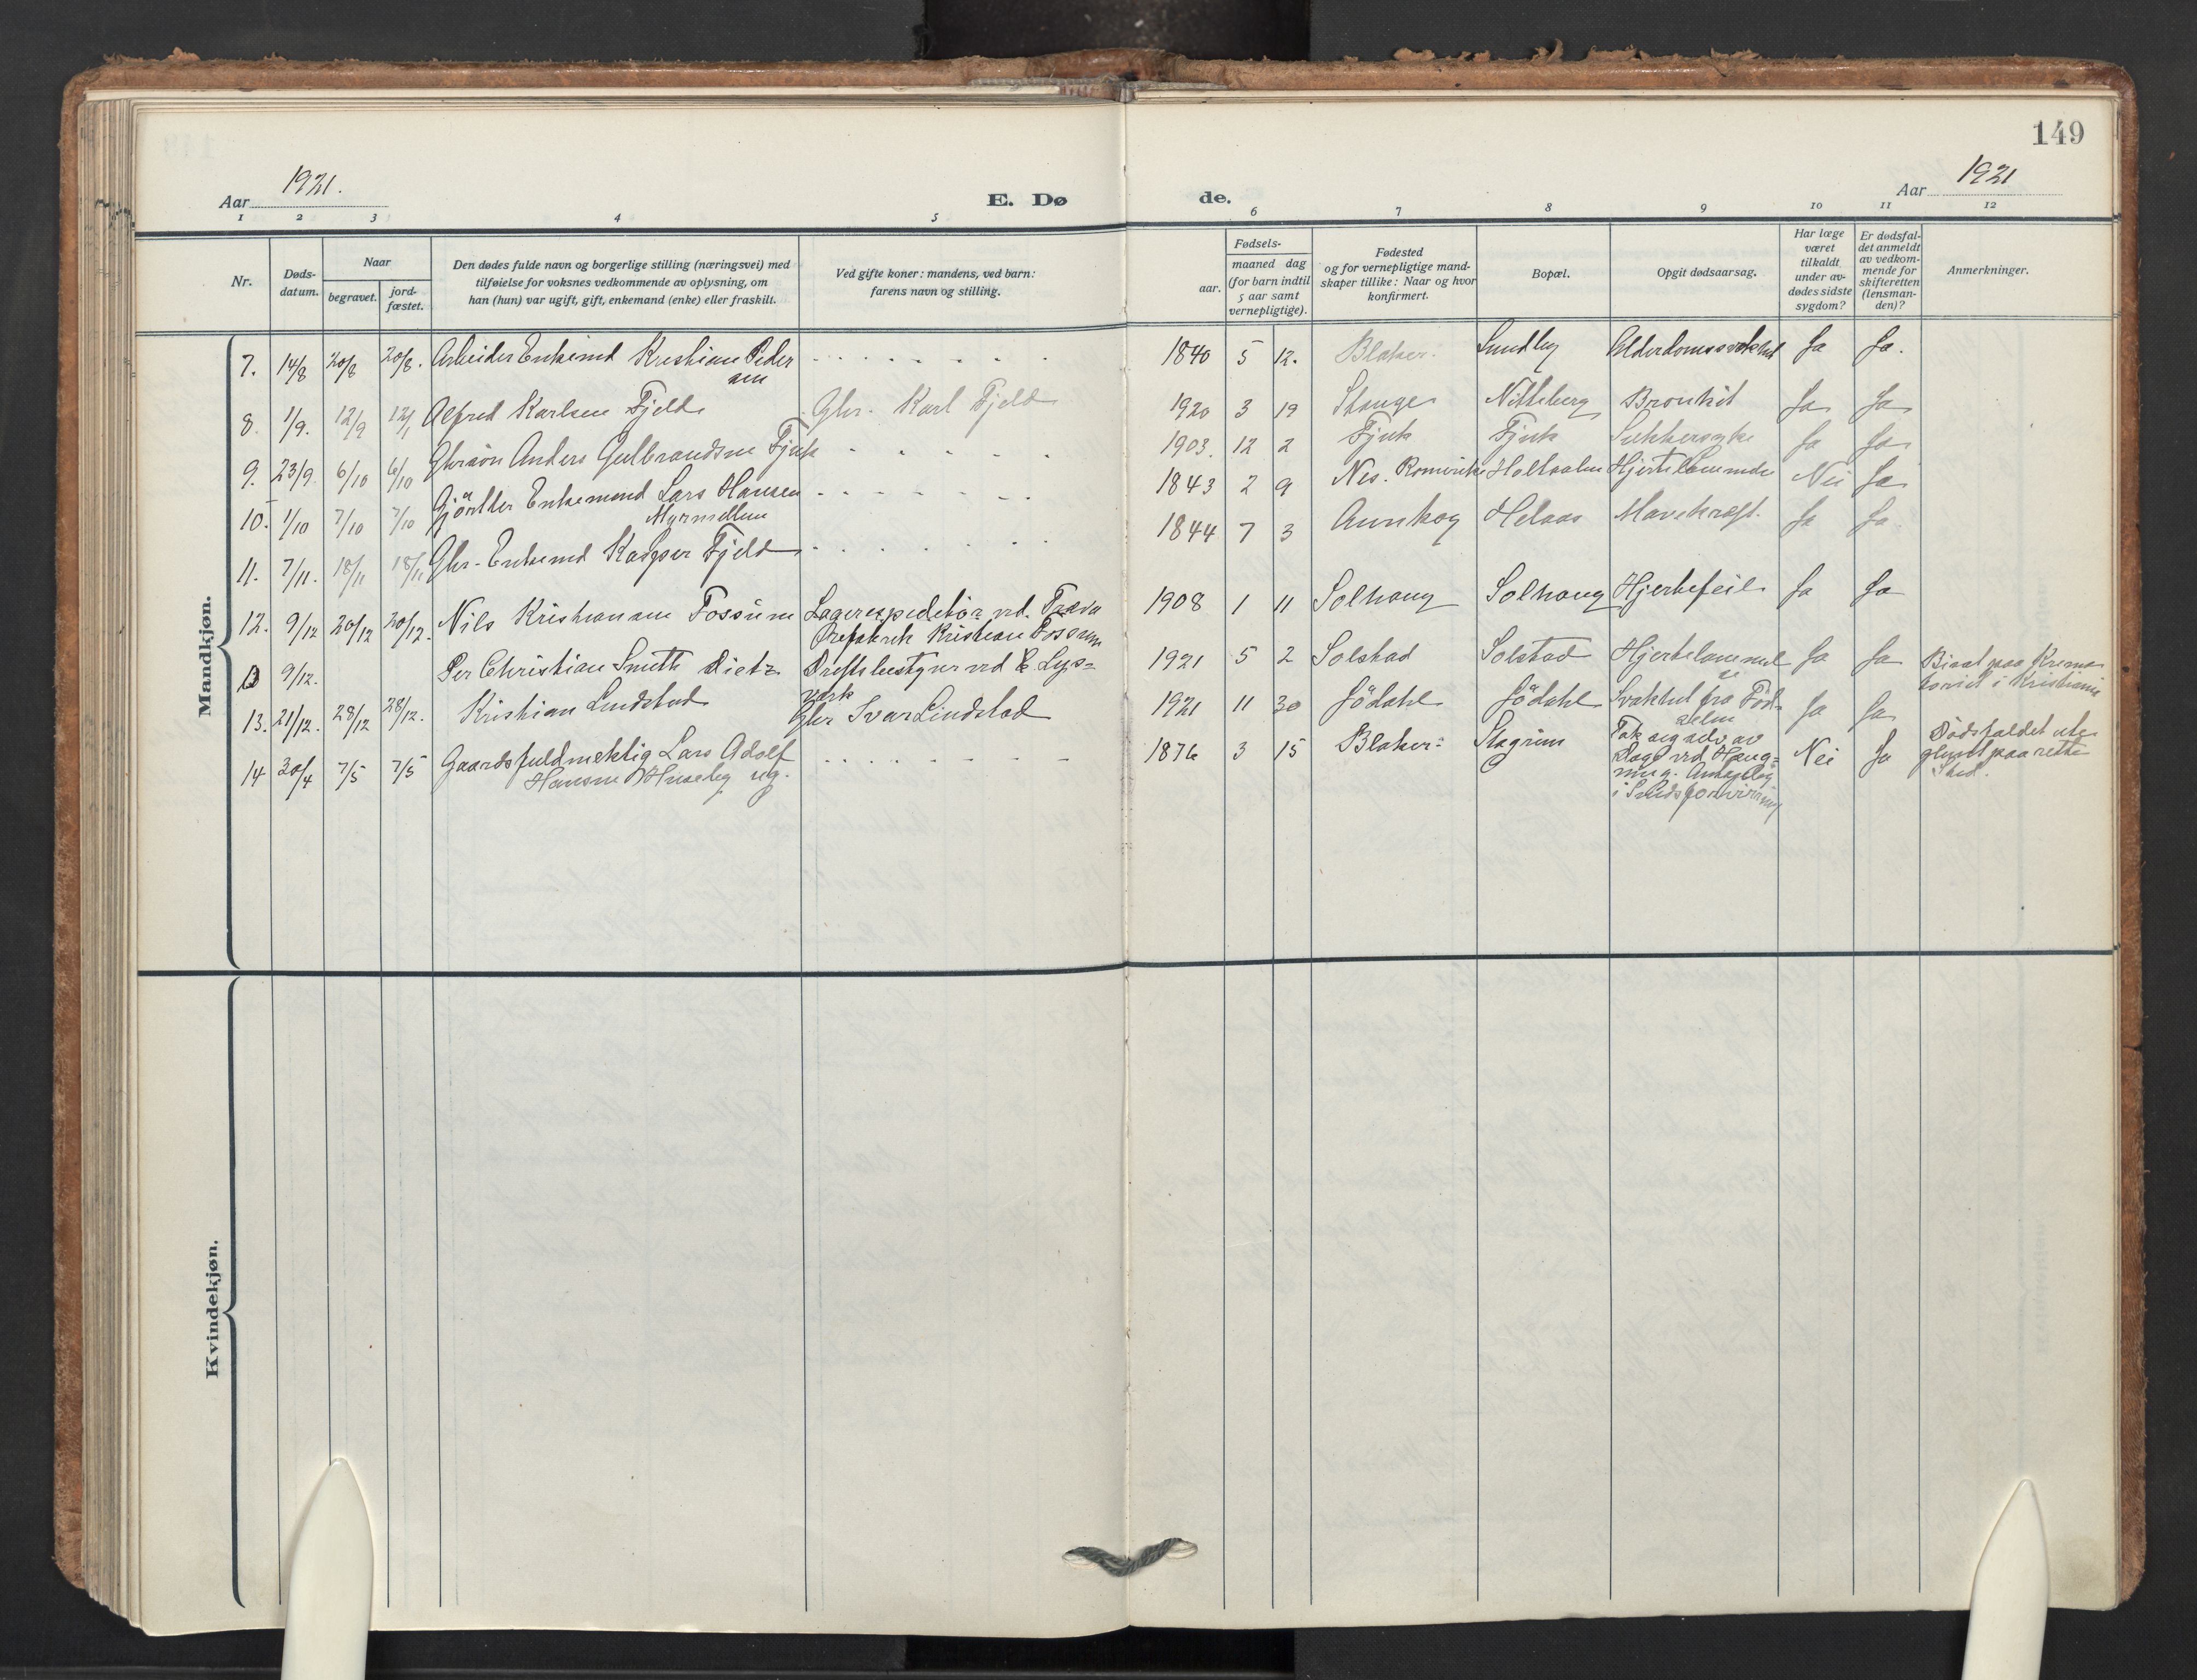 149
Aar 1921. E. Døde. Aar 1921
1 2 3 4 5 6 7 8 9 10 11 12
Nr.
Døds-
datum.
Naar
begravet.
jord-
fæstet.
Den dødes fulde navn og borgerlige stilling (næringsvei) med
tilføielse for voksnes vedkommende av oplysning, om
han (hun) var ugift, gift, enkemand (enke) eller fraskilt.
Ved gifte koner: mandens, ved barn:
farens navn og stilling.
Fødsels-
aar.
maaned dag
(for barn indtil
5 aar samt
vernepligtige).
Fødested
og for vernepligtige mand-
skaper tillike: Naar og hvor
konfirmert.
Bopæl.
Opgit dødsaarsag.
Har læge
været
tilkaldt
under av-
dødes sidste
sygdom?
Er dødsfal-
det anmeldt
av vedkom-
mende for
skifteretten
(lensman-
den)?
Anmerkninger.
Mandkjøn.
7. 14/8 20/8 20/8. Arbeider Enkemd Kristian Peder
sen
1840 5 12. Blaker. Sundby Alderdomssvakhet Ja Ja.
8. 1/9. 12/9 Alfred Karlsen Fjeld Gbr. Karl Fjeld 1920 3 19 Stange Nitteberg Bronkit Ja Ja
9. 23/9 6/10 6/10 Gbrsøn Anders Gulbrandsen Fjuk 1903. 12 2 Fjuk Fjuk Sukkersyke Ja Ja
10. 1/10 7/10 7/10 Enkemand Lars Hansen
1843 2 9 Nes. Romerike Hjertelammelse Nei Ja
11. 7/11. 18/11 18/11 Gbr. Enkemd Kasper Fjeld 1844 7 3 Aurskog Helaas Mavekræft. Ja Ja
12. 9/12 20/12 20/12. Nils Kristiansen Fossum Lagerekspeditør ved
Kristian Fossum
1908 1 11 Solhaug Solhaug Hjertefeil Ja Ja
9/12. Per Christian Smith Dietz Driftsbestyrer ved E. Lys-
verk
1921 5 2 Solstad Solstad Hjertelammel
se
Ja Ja Bisat paa Krema
toriet i Kristiania
13. 21/12. 28/12 28/12. Kristian Lindstad Gbr Ivar Lindstad 1921 11 30 Jödahl Jödahl Svakhet fra Föd-
selen
Ja Ja
14 30/4 7/5 7/5 Gaardsfuldmektig Lars Adolf
Hansen Huseby ug.
1876 3 15 Blaker Tok sig selv av
Dage ved Hæng-
ning. Antagelig
i Sindsforvirring
Nei Ja Dødsfaldet ute
glemt paa rette
Sted.
Kvindekjøn.